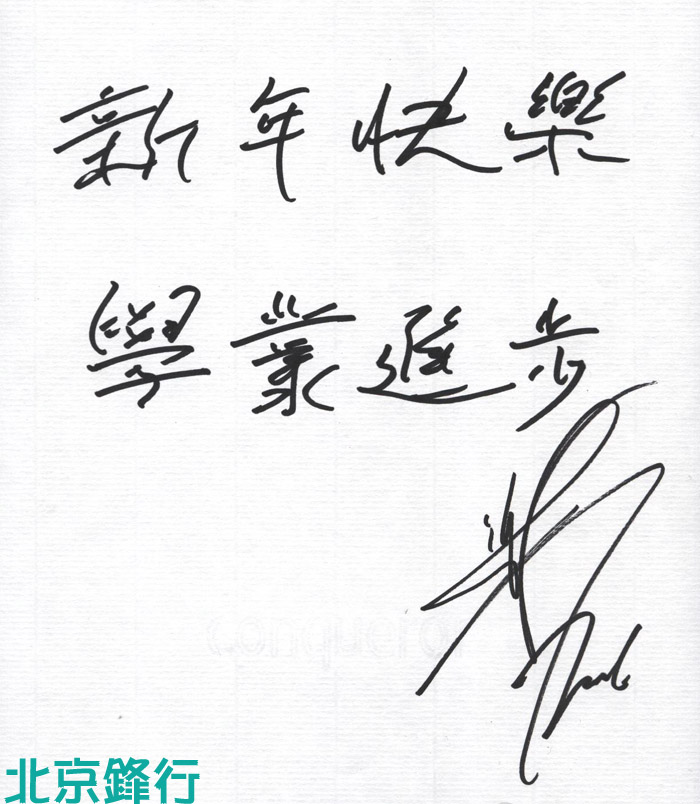 新年快樂
學業進步
北京鋒行